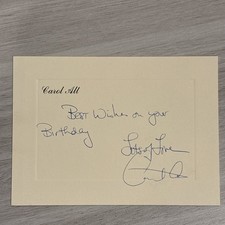 Carol Alt
Best Wishes on your
Birthday
Lots of Love